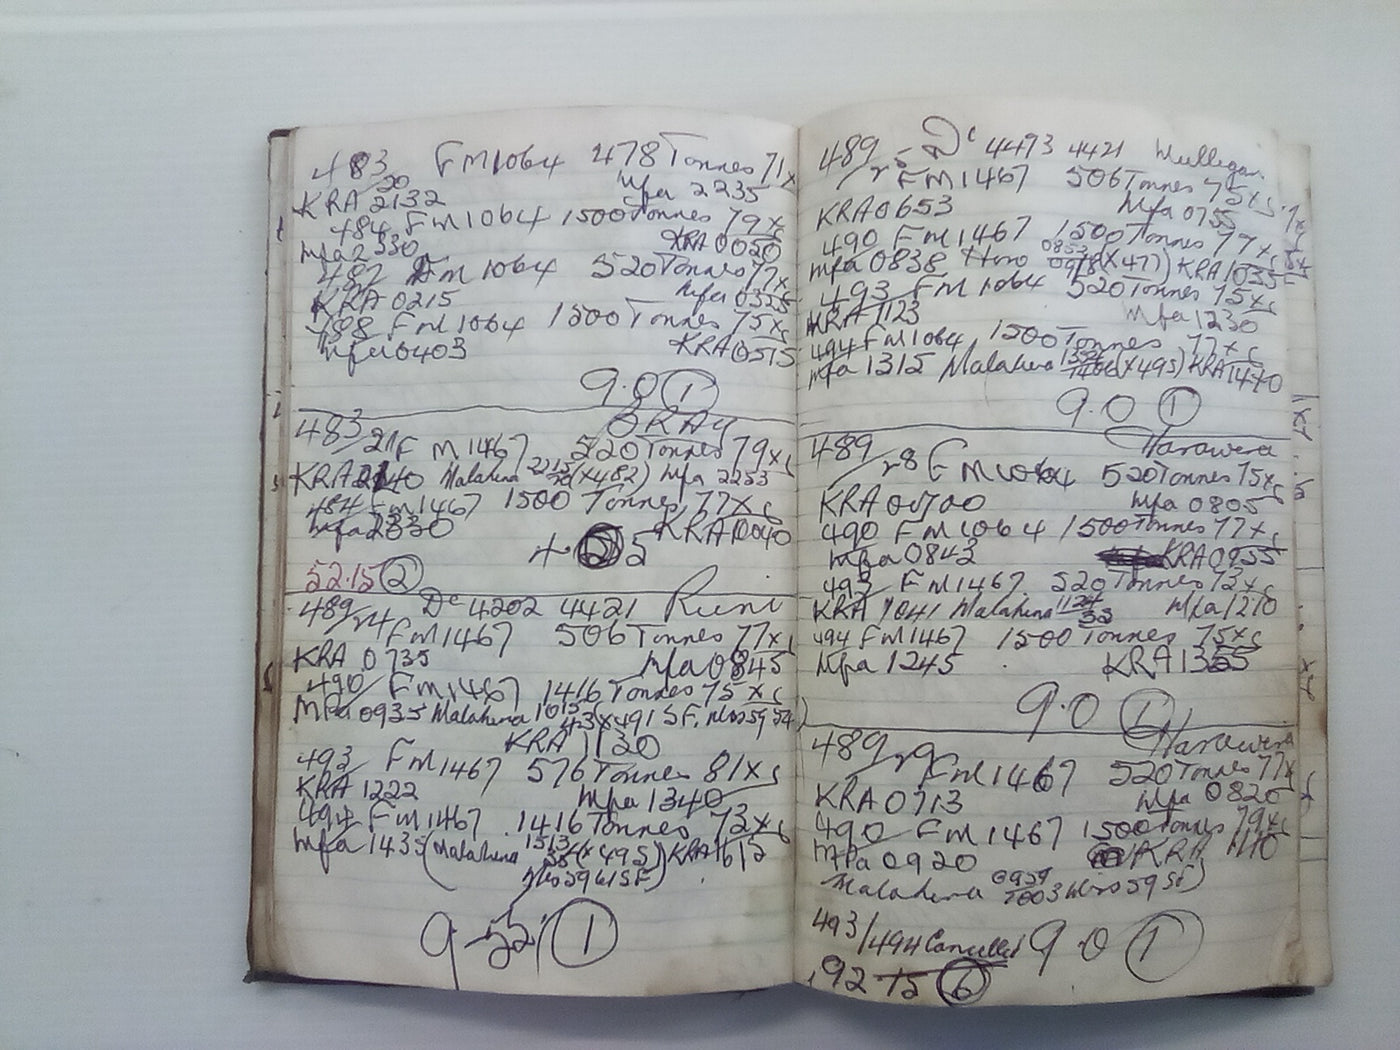 483 FM1064 478 Tonnes 71xs
20
KRA 2132 Mfa 2235
484 FM1064 1500 Tonnes 79xs
Mfa 2330 KRA 0050
487 FM1064 520 Tonnes 77xs
KRA 0215 Mfa 0325
488 FM1064 1500 Tonnes 75xs
Mfa 0403 KRA 0515
9.0 1
GRAY
483/21 FM1467 520 Tonnes 79xs
KRA 2140 Malahina (x482) Mfa 2253
484 FM1467 1500 Tonnes 77xs
Mfa 2330 KRA 0040
52.15 2
489/24 Dc 4202 4421 Runi
FM1467 506 Tonnes 77xs
KRA 0735 Mfa 0845
490 FM1467 1416 Tonnes 75xs
MFa 0935 Malahina 1015
43 x491 SF.
KRA 1120
493 FM1467 576 Tonnes 81xs
KRA 1222 Mfa 1340
494 FM1467 1416 Tonnes 73xs
Mfa 1435 (Malahina 1513 (x495) KRA 1612
9-52 1
489 Dc 4493 4421 Mulligan
25 FM1467 506 Tonnes 75xs
KRA 0653 Mfa 0755
490 FM1467 1500 Tonnes 77xs
Mfa 0838 Hono 0853 (x477) KRA 1035
493 FM1064 520 Tonnes 75xs
KRA 1123 Mfa 1230
494 FM1064 1500 Tonnes 77xs
Mfa 1315 Malahina (x495) KRA 1440
9.0 1
Harawera
489/28 FM1064 520 Tonnes 75xs
KRA 0700 Mfa 0805
490 FM1064 1500 Tonnes 77xs
Mfa 0843 KRA 0955
493 FM1467 520 Tonnes 73xs
KRA 1041 Malahina 1124 Mfa 1210
32
494 FM1467 1500 Tonnes 75xs
Mfa 1245 KRA 1355
9.0 1
Harawera
489/29 FM1467 520 Tonnes 77xs
KRA 0713 Mfa 0820
490 FM1467 1500 Tonnes 79xs
MFa 0920 KRA 1110
Malahina 0959
1003
493/494 Cancelled 9.0 1
92.15 6